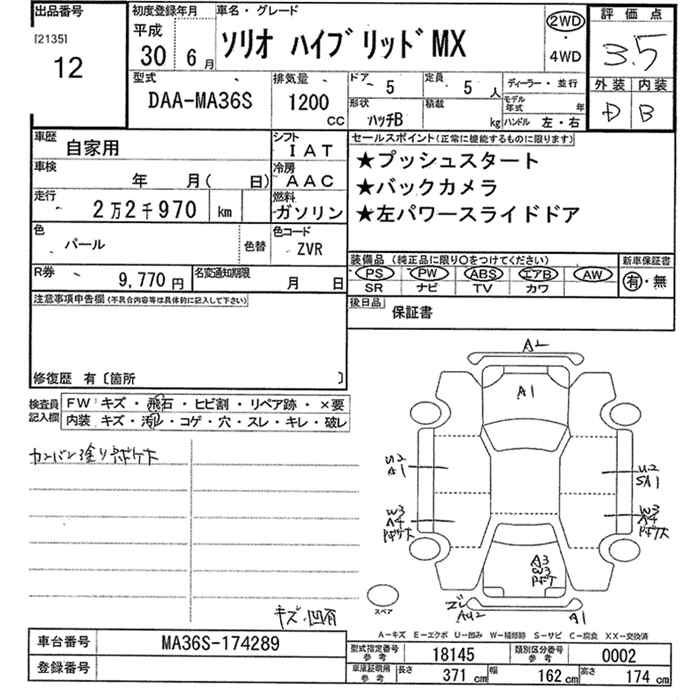 出品番号
[2135]
12
初度登録年月
平成
30 6月
車名・グレード
ソリオ ハイブリッドMX
2WD
・
4WD
評価点
3.5
外装 内装
D B
型式
DAA-MA36S
排気量
1200
CC
ドア 5
定員 5 人
形状
ハッチB
積載
kg
ディーラー・並行
モデル年式 年
ハンドル 左・右
車歴
自家用
シフト
IAT
車検
年 月( 日)
冷房
AAC
走行
2万2千970 km
燃料
ガソリン
色
パール
色替
色コード
ZVR
R券
9,770円
名変通知期限
月 日
セールスポイント(正常に機能するものに限ります)
★プッシュスタート
★バックカメラ
★左パワースライドドア
装備品(純正品に限り○をつけてください)
PS PW ABS エアB AW
SR ナビ TV カワ
新車保証書
有・無
後日品
保証書
注意事項申告欄(不具合内容等は具体的に記入して下さい)
修復歴 有〔箇所 〕
検査員
記入欄
FW キズ・飛石・ヒビ割・リペア跡・×要
内装 キズ・汚れ・コゲ・穴・スレ・キレ・破レ
キズ・凹有
A2
A1
U2
A1
U2
SA1
W3
A4
W3
A4
A3
W3
A1
スペア
A-キズ E-エクボ U-凹み W-補修跡 S-サビ C-腐食 XX-交換済
車台番号
MA36S-174289
登録番号
型式指定番号
参考
18145
類別区分番号
参考
0002
車庫証明用
参考
長さ 371 cm
幅 162 cm
高さ 174 cm